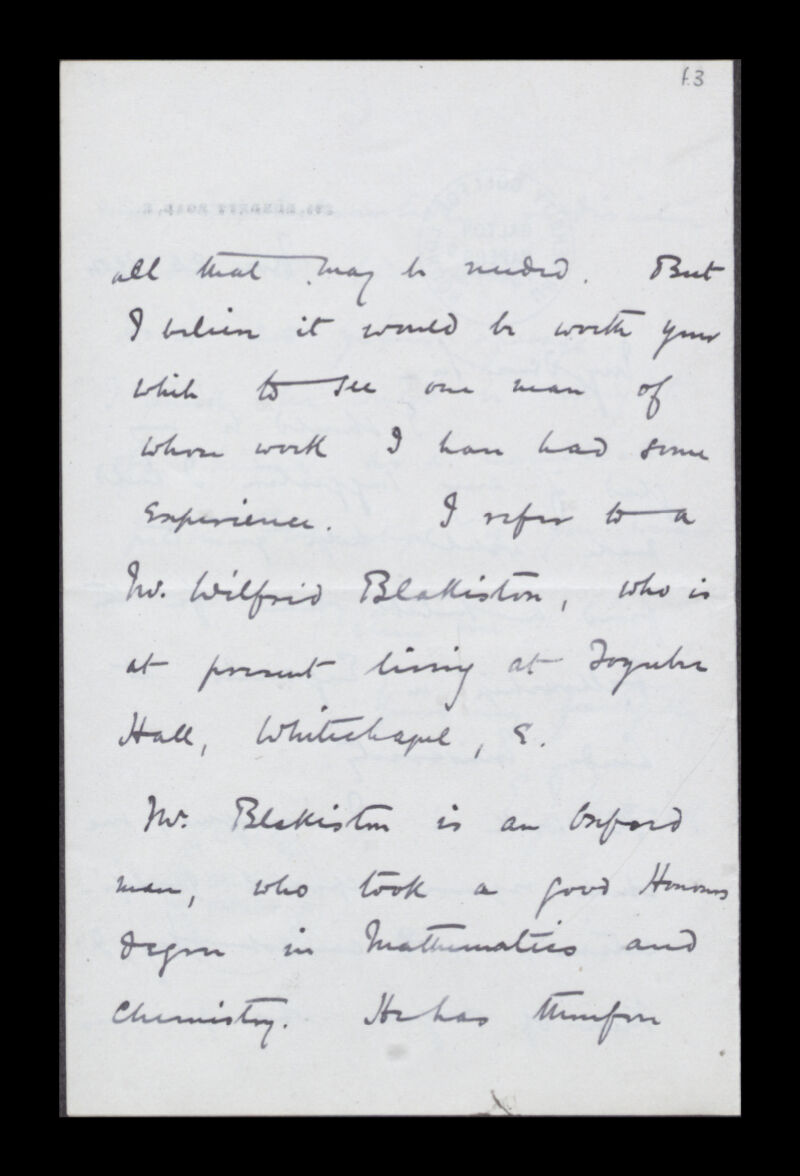 f.3
all that may be needed. But
I believe it would be worth your
while to see one man of
whose work I have had some
experience. I refer to a
Mr. Wilfrid Blakiston, who is
at present living at Toynbee
Hall, Whitechapel, E.
Mr. Blakiston is an Oxford
man, who took a good Honours
degree in Mathematics and
Chemistry. He has therefore